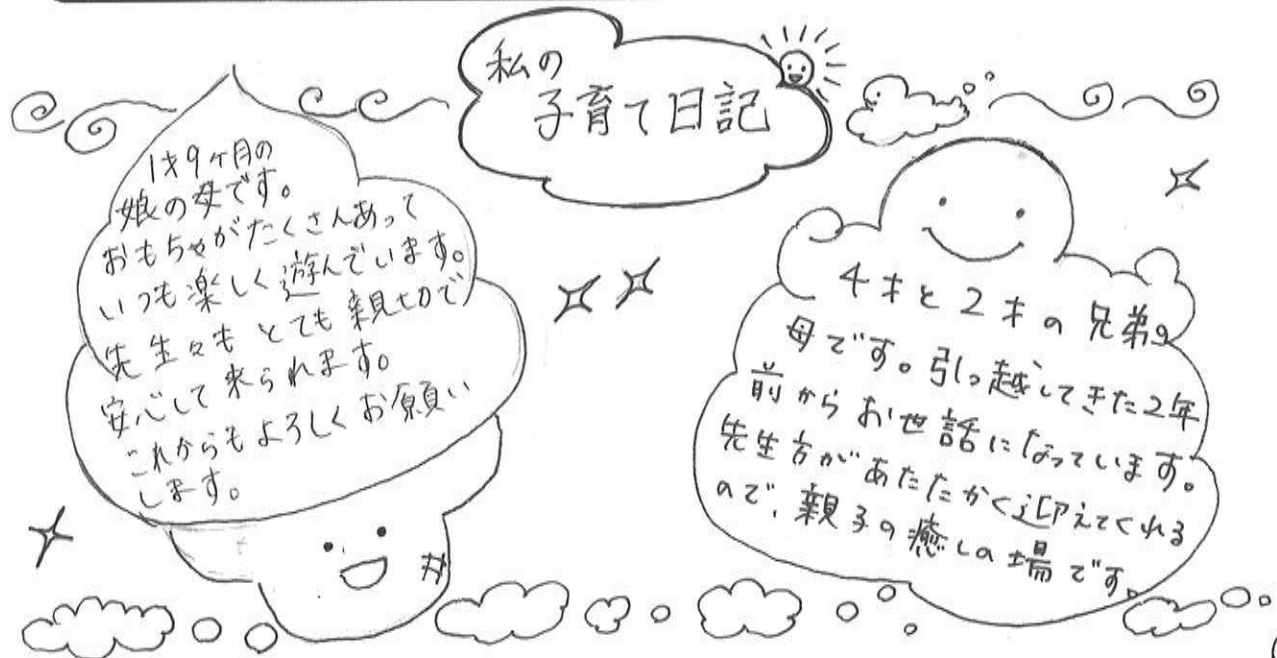 私の
子育て日記
1才9ヶ月の
娘の母です。
おもちゃがたくさんあって
いつも楽しく遊んでいます。
先生々もとても親切で
安心して来られます。
これからもよろしくお願い
します。
4才と2才の兄弟の
母です。引っ越してきた2年
前からお世話になっています。
先生方があたたかく迎えてくれる
ので、親子の癒しの場です。